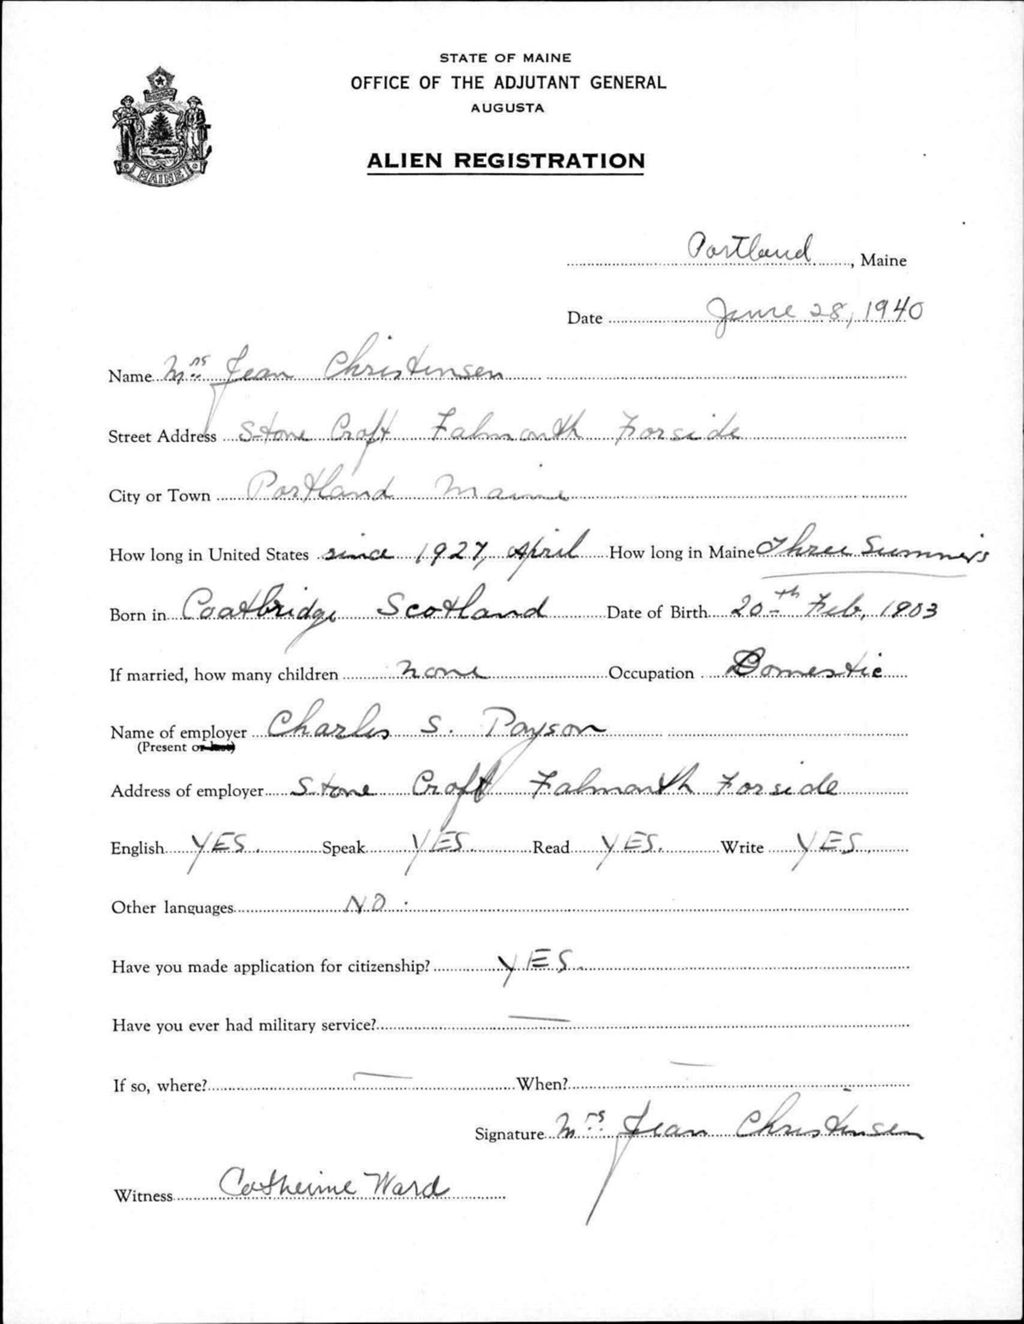 STATE OF MAINE
OFFICE OF THE ADJUTANT GENERAL
AUGUSTA
ALIEN REGISTRATION
MAINE
Portland, Maine
Date June 28, 1940
Name Mrs Jean Christensen
Street Address Stone Croft Falmouth Forside
City or Town Portland Maine
How long in United States since 1927, April How long in Maine Three Summers
Born in Coatbridge Scotland Date of Birth 20th Feb, 1903
If married, how many children none Occupation Domestic
Name of employer Charles S. Payson
(Present or last)
Address of employer Stone Croft Falmouth Forside
English YES. Speak YES. Read YES. Write YES.
Other languages NO.
Have you made application for citizenship? YES.
Have you ever had military service? —
If so, where? — When? —
Signature Mrs Jean Christensen
Witness Catherine Ward